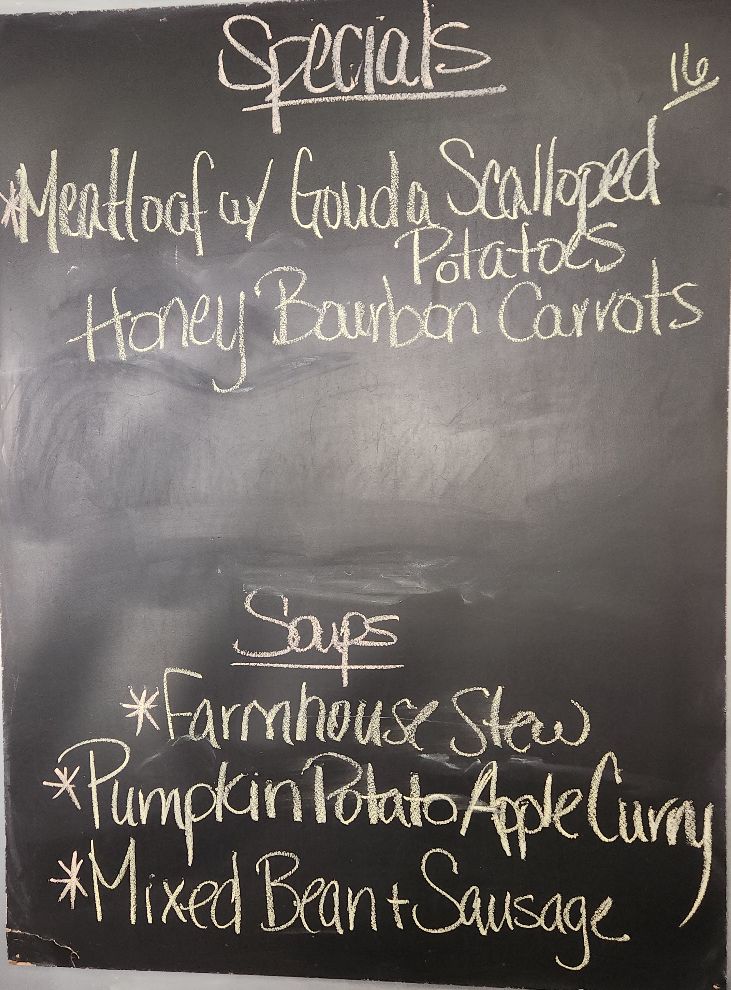 Specials
16
*Meatloaf w/ Gouda Scalloped
Potatoes
Honey Bourbon Carrots
Soups
*Farmhouse Stew
*Pumpkin Potato Apple Curry
*Mixed Bean + Sausage